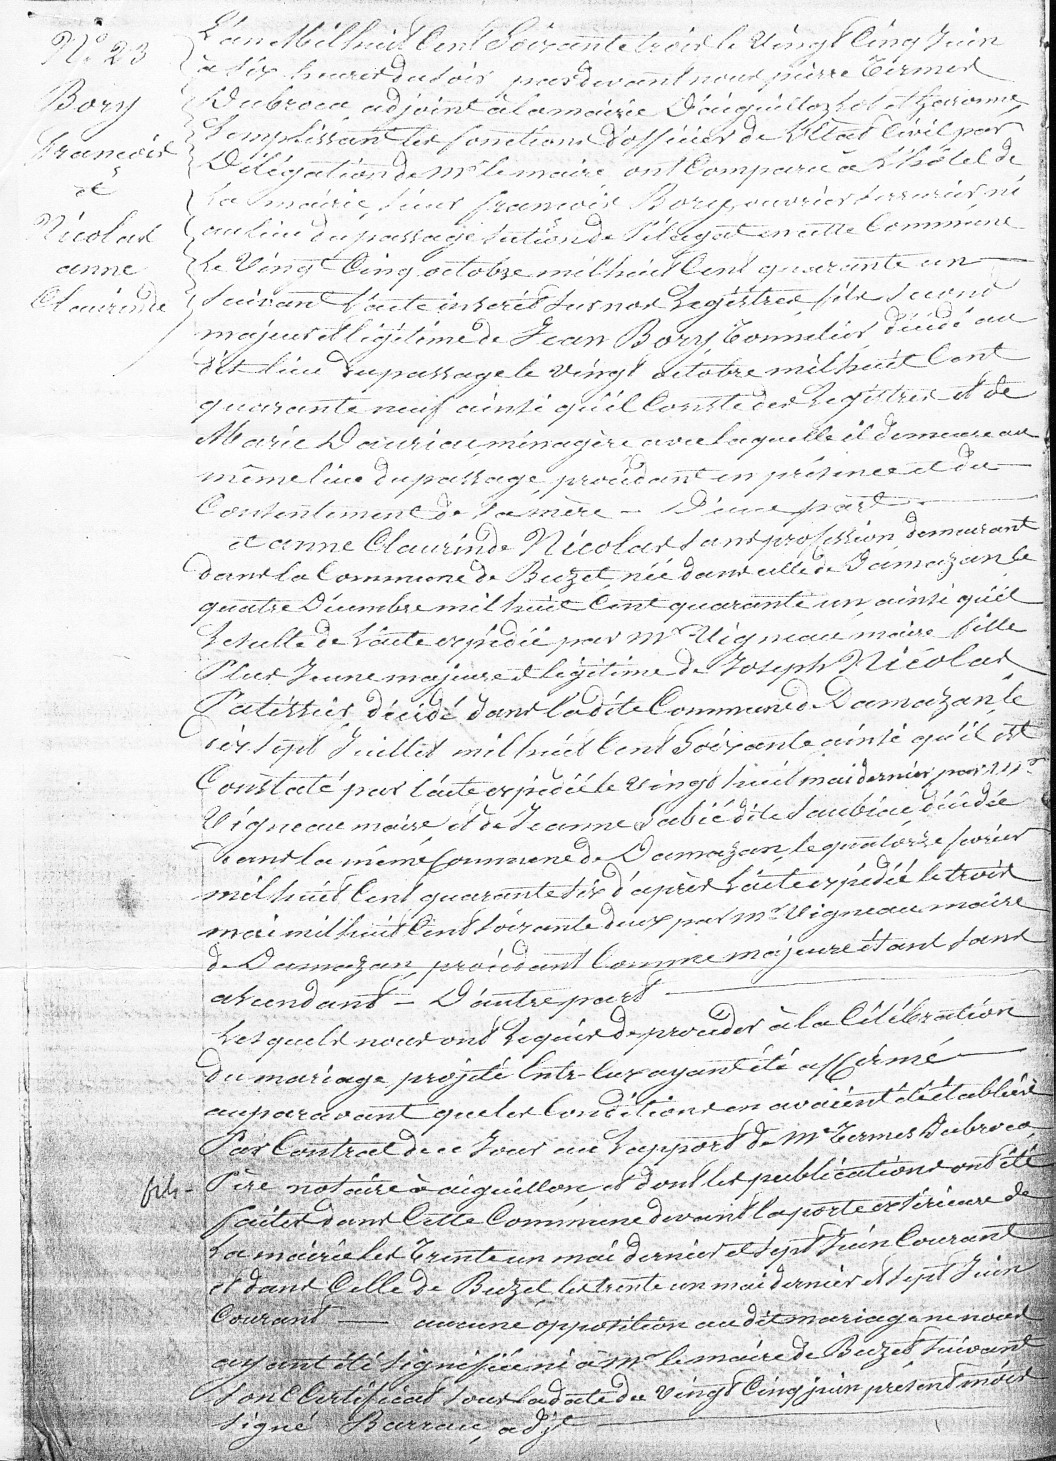 N° 23
Bory
francois
et
Nicolas
anne
Claurinde
L'an Mil huit Cent Soixante trois le Vingt Cinq Juin
à six heures du soir, pardevant nous pierre Termes
Dubroca adjoint à la mairie D'aiguillon Lot et Garonne,
Remplissant les fonctions d'officier de l'Etat Civil par
Délégation de Mr le maire, ont Comparu à l'hôtel de
La mairie, sieur francois Bory, ouvrier serrurier né
au lieu du passage section de Pélagat en cette Commune
Le Vingt Cinq octobre mil huit Cent quarante un
suivant l'acte inscrit sur nos Registres fils second
majeur et légitime de Jean Bory Tonnelier décédé au
dit lieu du passage le vingt octobre mil huit Cent
quarante neuf ainsi qu'il Conste des Registres et de
Marie Dauriac ménagère avec laquelle il demeure au
même lieu du passage, procédant en présence et du
Consentement de sa mère – D'une part
et anne Claurinde Nicolas sans profession demeurant
dans la Commune de Buzet, née dans celle de Damazan le
quatre Décembre mil huit Cent quarante un, ainsi qu'il
Resulte de l'acte expédié par Mr Vigneau, maire, fille
Plus Jeune majeure et légitime de Joseph Nicolas
Patissier, décédé dans la dite Commune de Damazan le
dix sept Juillet mil huit Cent Soixante ainsi qu'il est
Constaté par l'acte expédié le vingt huit mai dernier, par Mr
Vigneau maire et de Jeanne Labié dite Saubiac décédée
Dans la même Commune de Damazan, le quatorze fevrier
mil huit Cent quarante six d'après l'acte expédié le trois
mai mil huit Cent soixante deux par Mr Vigneau maire
de Damazan, procédant Comme majeure étant sans
ascendants – D'autre part
Lesquels nous ont Requis de procéder à la Célébration
du mariage projeté Entr'eux ayant été affirmé
auparavant que les Conditions en avaient été établies
Par Contrat de ce Jour au Rapport de Me Termes Dubroca,
Père notaire à aiguillon et dont les publications ont été
faites dans Cette Commune devant la porte extérieure de
La mairie les Trente un mai dernier et sept Juin Courant
et dans Celle de Buzet les trente un mai dernier et sept Juin
Courant — aucune opposition au dit mariage ne nous
ayant été signifiée ni à Mr le maire de Buzet suivant
son Certificat sous la date du vingt Cinq juin présent mois
signé Barrau, adjt